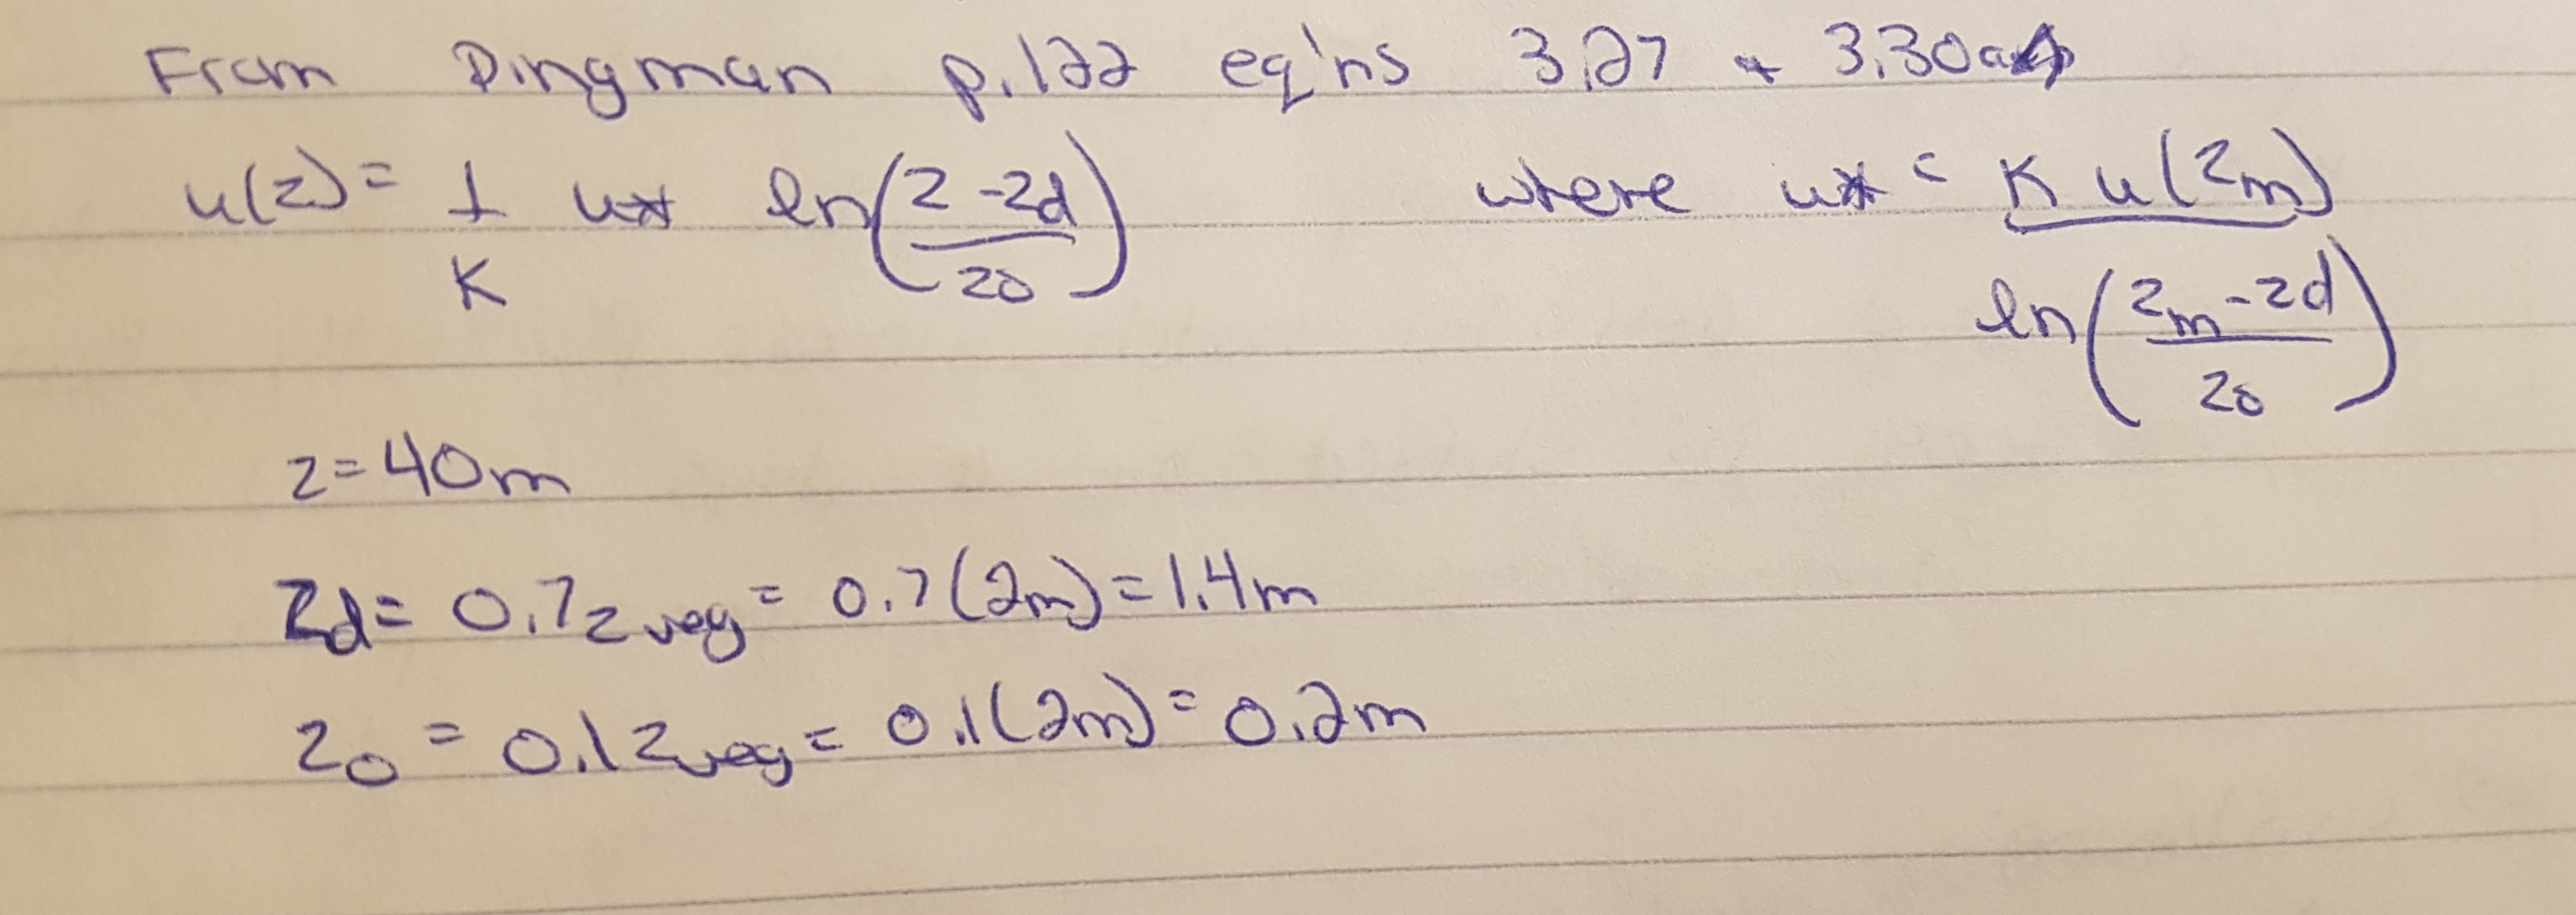 From Dingman p.122 eq'ns 3.27 + 3.30a
u(z) = 1/K u* ln((z - zd)/z0) where u* = K u(zm) / ln((zm - zd)/z0)
z = 40m
zd = 0.7zveg = 0.7(2m) = 1.4m
z0 = 0.1zveg = 0.1(2m) = 0.2m